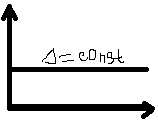 Δ=const